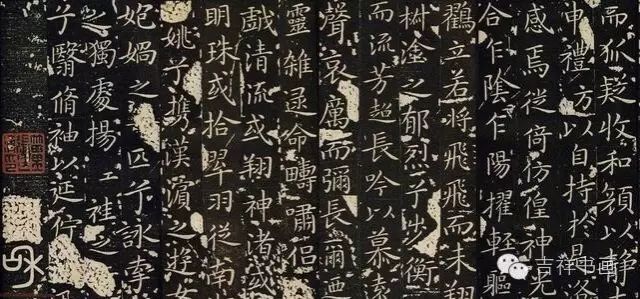 而狐疑收和顔以静
申禮方以自持於是洛
感焉徙倚彷徨神光
合乍陰乍陽擢輕軀
立若將飛飛而未翔
塗之郁烈兮步衡
而流芳超長吟以慕
聲哀厲而彌長爾迺
靈雜遝命疇嘯侶
戲清流或翔神渚或
明珠或拾翠羽從南
姚兮携漢濱之遊女
媧之匹兮詠牽
之獨處揚袿之
兮翳脩袖以延佇
吉祥书画